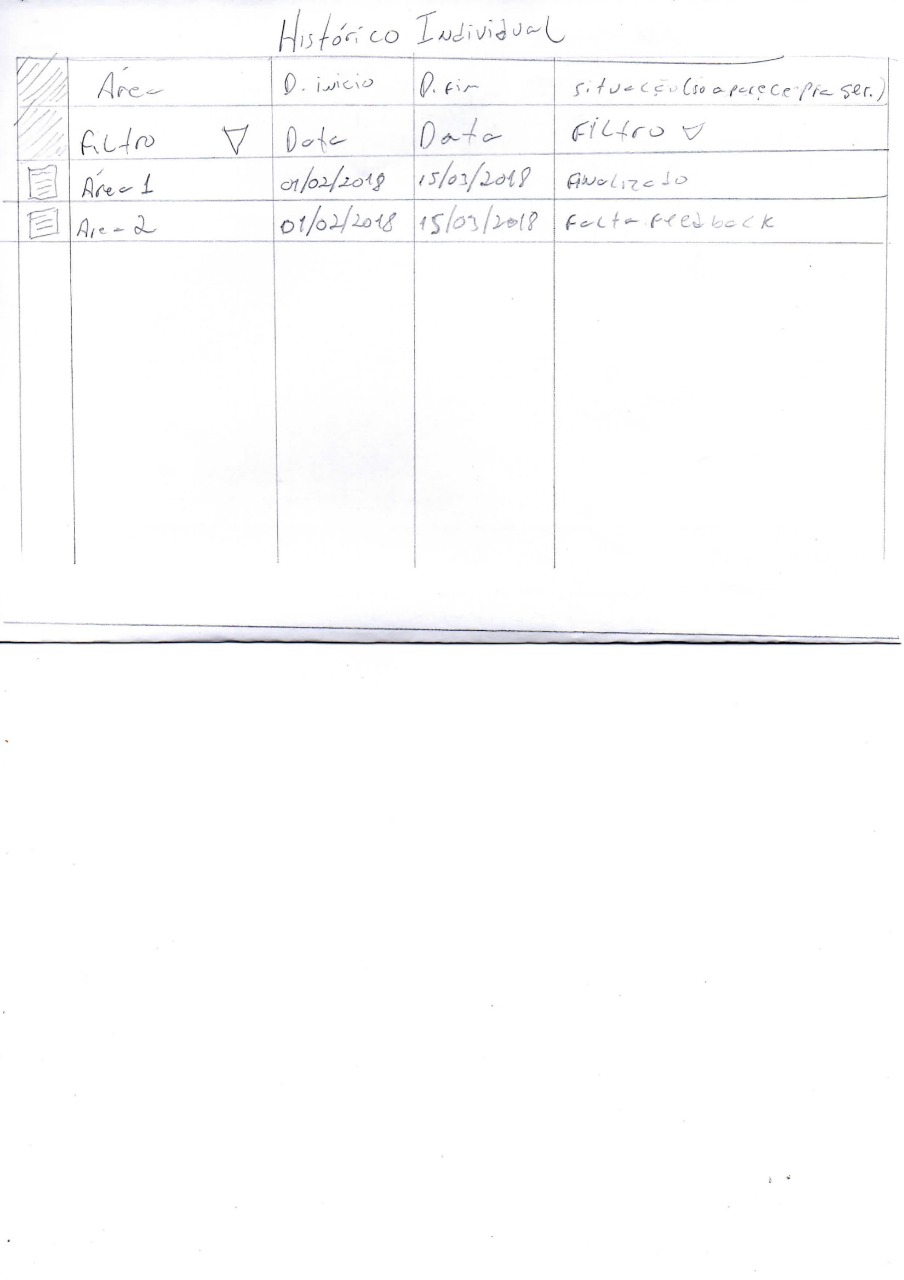 Histórico Individual
Área D. início D. fim Situação (só aparece pra ger.)
Filtro Data Data Filtro
Área 1 01/02/2018 15/03/2018 Finalizado
Área 2 01/02/2018 15/03/2018 Falta Feedback